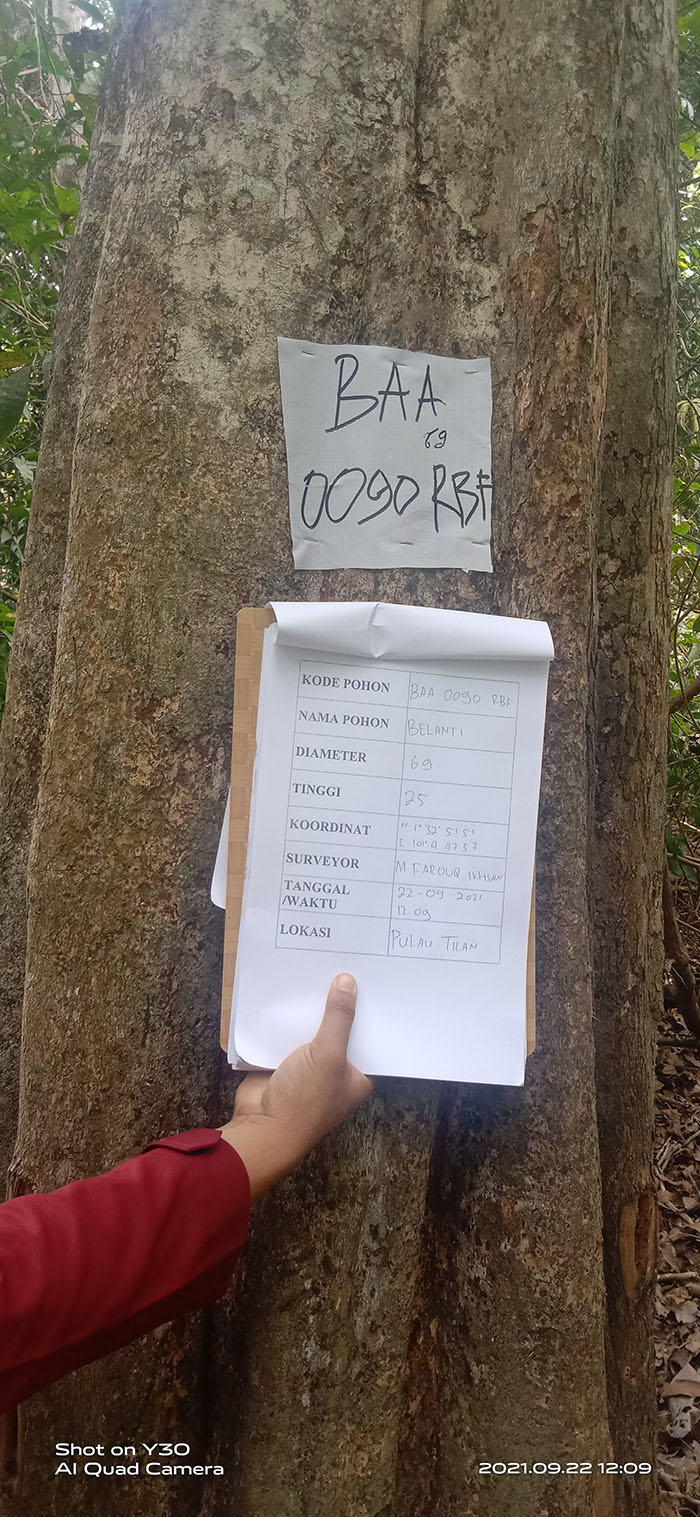 BAA
69
0090 RBF
KODE POHON BAA 0090 RBF
NAMA POHON BELANTI
DIAMETER 69
TINGGI 25
KOORDINAT N 1° 32' 51 51
E 101° 4 47 57
SURVEYOR M FAROUQ IKHSAN
TANGGAL /WAKTU 22-09-2021
12:09
LOKASI PULAU TILAN
Shot on Y30
AI Quad Camera
2021.09.22 12:09